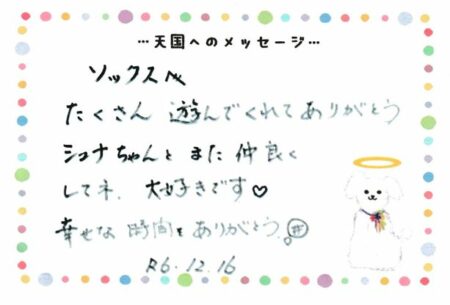 …天国へのメッセージ…
ソックスへ
たくさん 遊んでくれてありがとう
ショナちゃんと また 仲良く
してネ. 大好きです♡
幸せな 時間を ありがとう.
R6.12.16